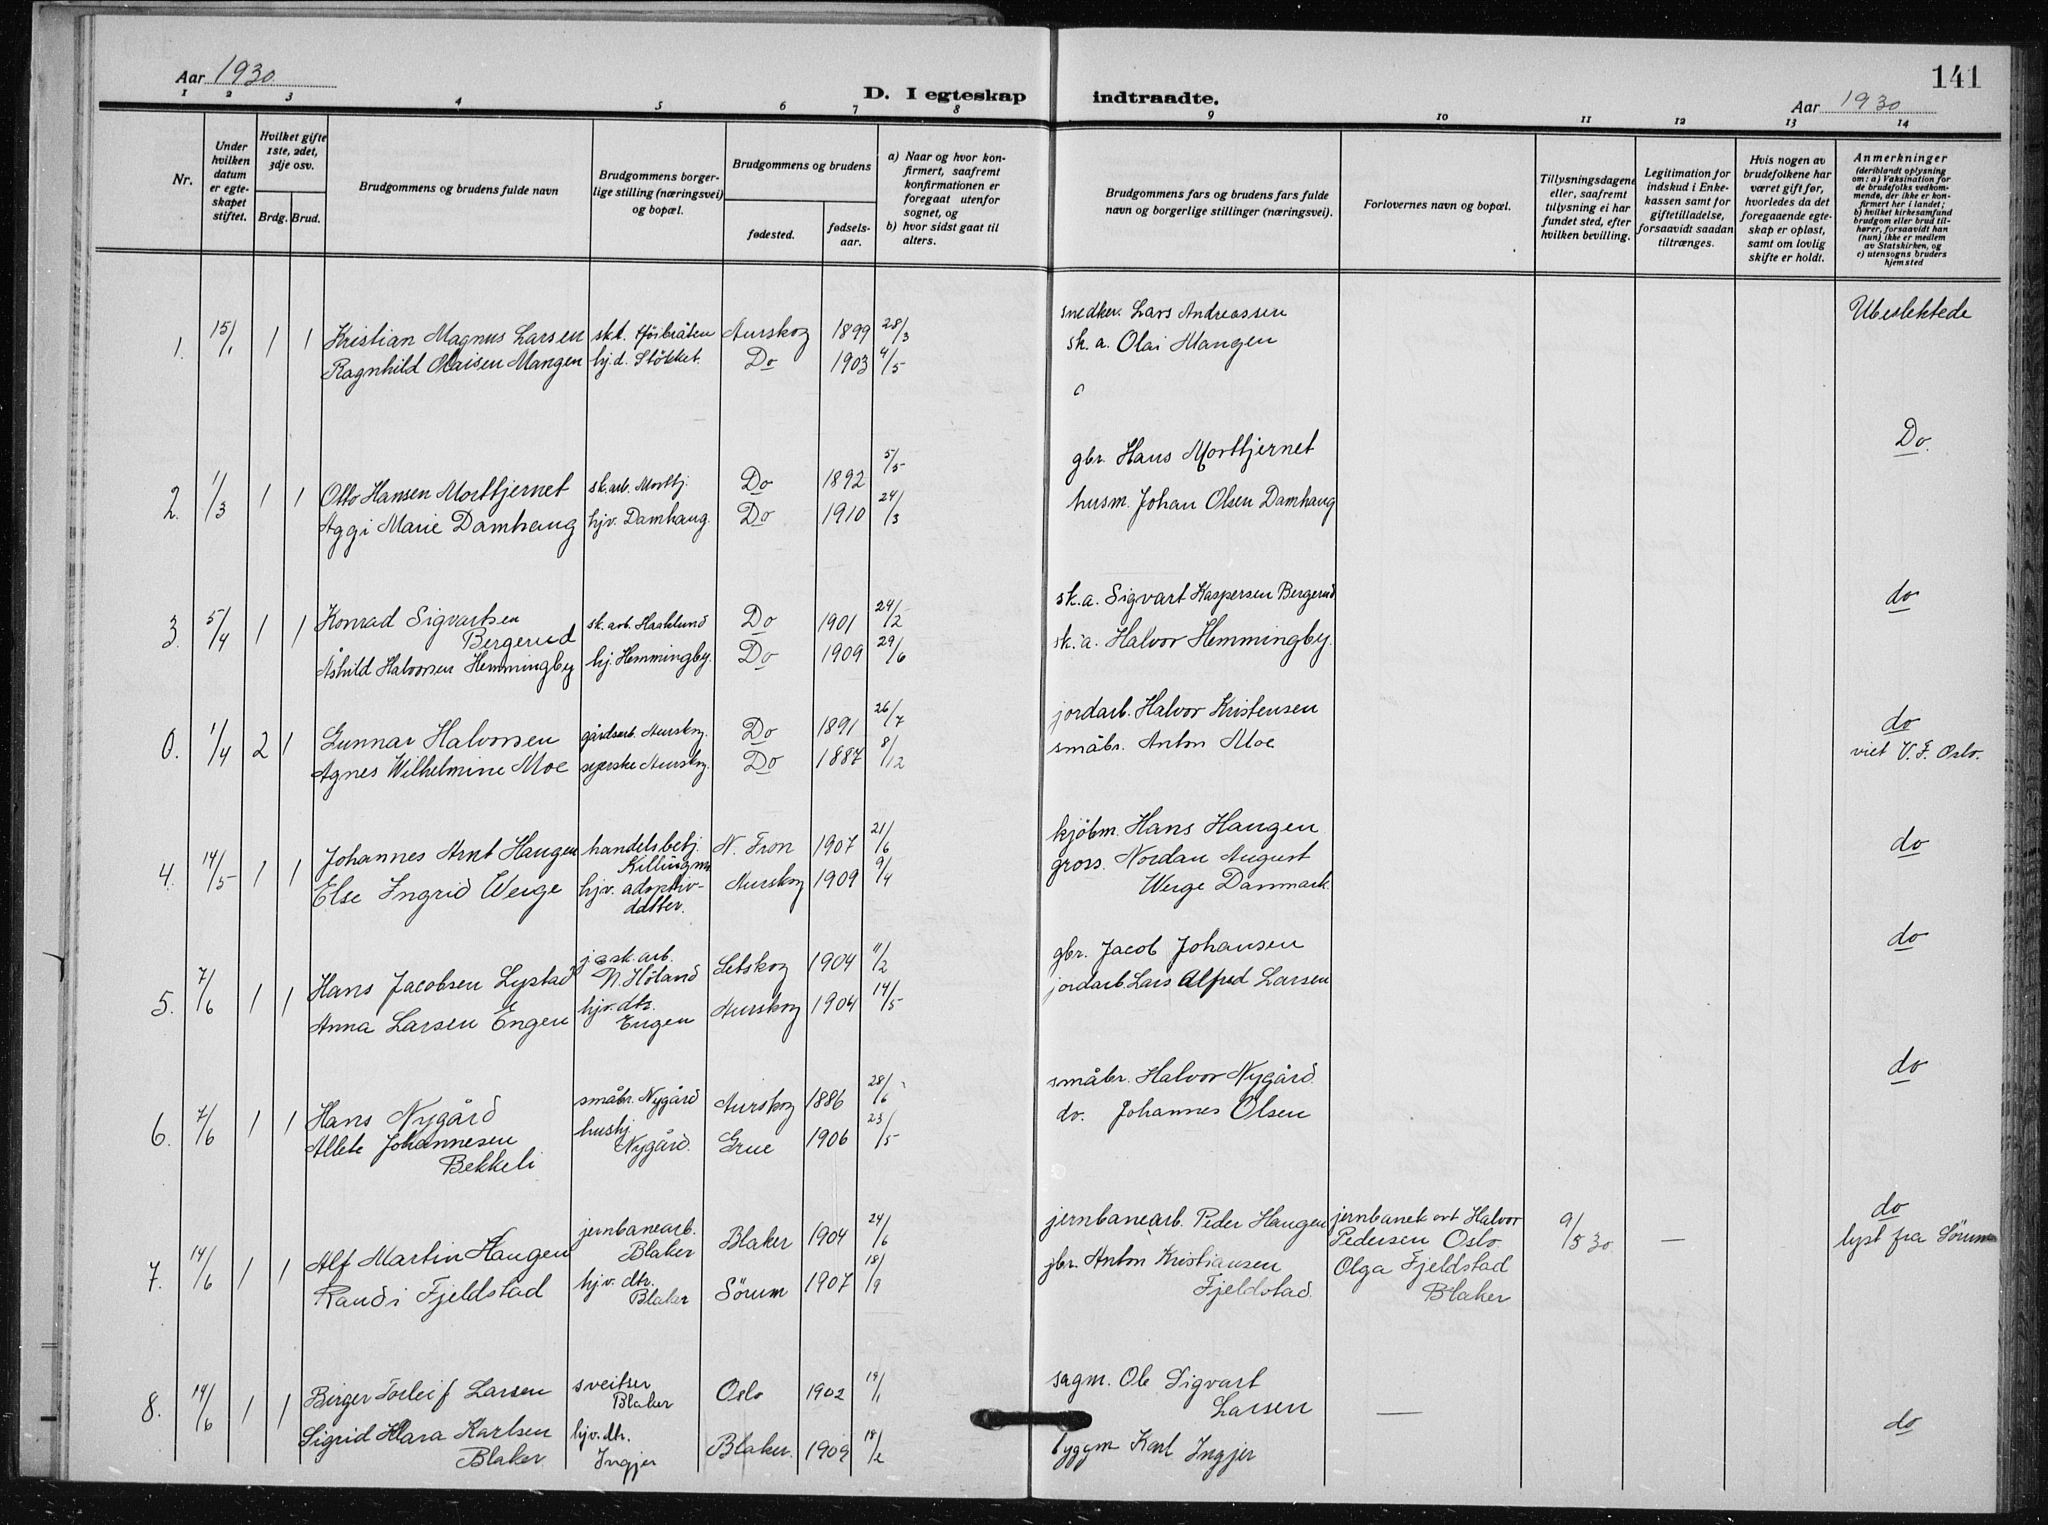 Aar 1930
141
D. I egteskap indtraadte.
Aar 1930
1 2 3 4 5 6 7 8 9 10 11 12 13 14
Nr.
Under hvilken datum er egteskapet stiftet.
Hvilket gifte 1ste, 2det, 3dje osv.
Brdg. Brud.
Brudgommens og brudens fulde navn
Brudgommens borgerlige stilling (næringsvei) og bopæl.
Brudgommens og brudens
fødested.
fødselsaar.
a) Naar og hvor konfirmert, saafremt konfirmationen er foregaat utenfor sognet, og
b) hvor sidst gaat til alters.
Brudgommens fars og brudens fars fulde navn og borgerlige stillinger (næringsvei).
Forlovernes navn og bopæl.
Tillysningsdagene eller, saafremt tillysning ei har fundet sted, efter hvilken bevilling.
Legitimation for indskud i Enkekassen samt for giftetilladelse, forsaavidt saadan tiltrænges.
Hvis nogen av brudefolkene har været gift før, hvorledes da det foregaaende egteskap er opløst, samt om lovlig skifte er holdt.
Anmerkninger (deriblandt oplysning om: a) Vaksination for de brudefolks vedkommende, der ikke er konfirmert her i landet; b) hvilket kirkesamfund brudgom eller brud tilhører, forsaavidt han (hun) ikke er medlem av Statskirken, og c) utensogns bruders hjemsted
1. 15/1 1 1 Kristian Magnus Larsen skt. Aurskog 1899 28/3 snedker. Lars Andreassen Ubeslektede
Ragnhild Olaisen Mangen hj.d. Støkket. Do 1903 4/5 sk. a. Olai Mangen
2. 1/3 1 1 Otto Hansen Morttjernet sk.arb. Morttj. Do 1892 5/5 gbr. Hans Morttjernet Do.
Aggi Marie Damhaug hjv. Damhaug. Do 1910 24/3 husm. Johan Olsen Damhaug
3. 5/4 1 1 Konrad Sigvartsen sk. arb. Haaklund Do 1901 24/2 sk. a. Sigvart Kaspersen Bergerud do
Bergerud
Åshild Halvorsen Hemmingby hj. Hemmingby. Do 1909 29/6 sk. a. Halvor Hemmingby.
0. 1/4 2 1 Gunnar Halvorsen gårdsarb. Aurskog. Do 1891 26/7 jordarb. Halvor Kristensen do
Agnes Wilhelmine Moe syerske Aurskog. Do 1887 8/12 småbr. Anton Moe viet V. F. Oslo.
4. 14/5 1 1 Johannes Arnt Haugen handelsbetj. N. Fron 1907 21/6 kjøbm. Hans Haugen do
Killingmo
Else Ingrid Werge hjv. adoptiv- Aurskog 1909 9/4 gross. Nordan August
datter. Werge Danmark.
5. 7/6 1 1 Hans Jacobsen Lystad j. & sk. arb. Setskog 1904 11/2 gbr. Jacob Johansen do
N. Höland
Anna Larsen Engen hjv. dtr. Aurskog 1904 14/5 jordarb. Lars Alfred Larsen
Engen
6. 7/6 1 1 Hans Nygård småbr. Nygård Aurskog 1886 28/6 småbr. Halvor Nygård. do
Allete Johannesen hushj Grue 1906 23/5 do. Johannes Olsen
Bekkeli Nygård.
7. 14/6 1 1 Alf Martin Haugen jernbanearb. Blaker 1904 24/6 jernbanearb. Peder Haugen jernbanek. Halvor 9/5 30 — do
Blaker Pedersen Oslo lyst fra Sörum
Randi Fjeldstad hjv. dtr. Sörum 1907 18/9 gbr. Anton Kristiansen Olga Fjeldstad
Blaker Fjeldstad. Blaker
8. 14/6 1 1 Birger Torleif Larsen sveitser Oslo 1902 19/1 sagm. Ole Sigvart —
Blaker Larsen
Sigrid Klara Karlsen hjv. dtr. Blaker. 1909 18/2 byggm Karl Ingjer do
Blaker Ingjer